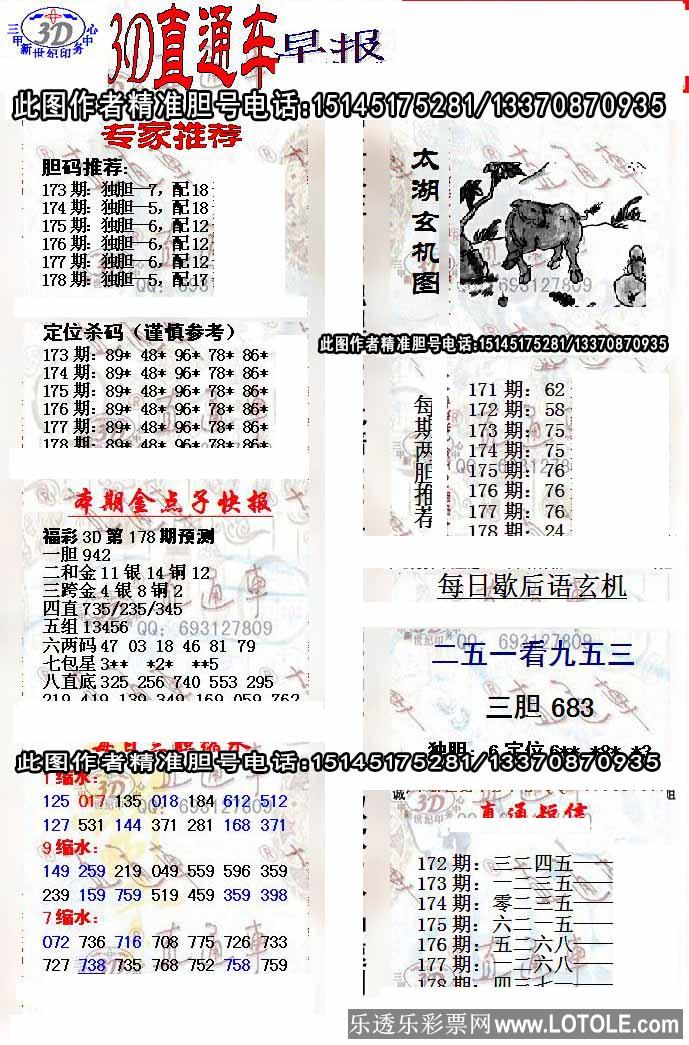 三甲 3D 心中
新世纪印务
3D直通车早报
此图作者精准胆号电话:15145175281/13370870935
专家推荐
胆码推荐:
173期：独胆—7，配18
174期：独胆—5，配18
175期：独胆—6，配12
176期：独胆—6，配12
177期：独胆—6，配12
178期：独胆—5，配17
定位杀码（谨慎参考）
173期：89* 48* 96* 78* 86*
174期：89* 48* 96* 78* 86*
175期：89* 48* 96* 78* 86*
176期：89* 48* 96* 78* 86*
177期：89* 48* 96* 78* 86*
178期：89* 48* 96* 78* 86*
本期金点子快报
福彩3D第178期预测
一胆942
二和金11银14铜12
三跨金4银8铜2
四直735/235/345
五组13456
QQ：693127809
六两码 47 03 18 46 81 79
七包星3** *2* **5
八直底325 256 740 553 295
219 419 139 349 169 059 762
太湖玄机图
QQ：693127809
此图作者精准胆号电话:15145175281/13370870935
每期两胆推荐
171期：62
172期：58
173期：75
174期：75
175期：76
176期：76
177期：76
178期：24
每日歇后语玄机
二五一看九五三
三胆 683
独胆：6 定位6** *8* *3
此图作者精准胆号电话:15145175281/13370870935
1缩水：
125 017 135 018 184 612 512
127 531 144 371 281 168 371
9缩水：
149 259 219 049 559 596 359
239 159 759 519 459 359 398
7缩水：
072 736 716 708 775 726 733
727 738 735 768 752 758 759
直通短信
172期：三二四五——
173期：一二三五——
174期：零二三五——
175期：六二一五——
176期：五二六八——
177期：一二六八——
178期：四三七一——
乐透乐彩票网www.LOTOLE.com